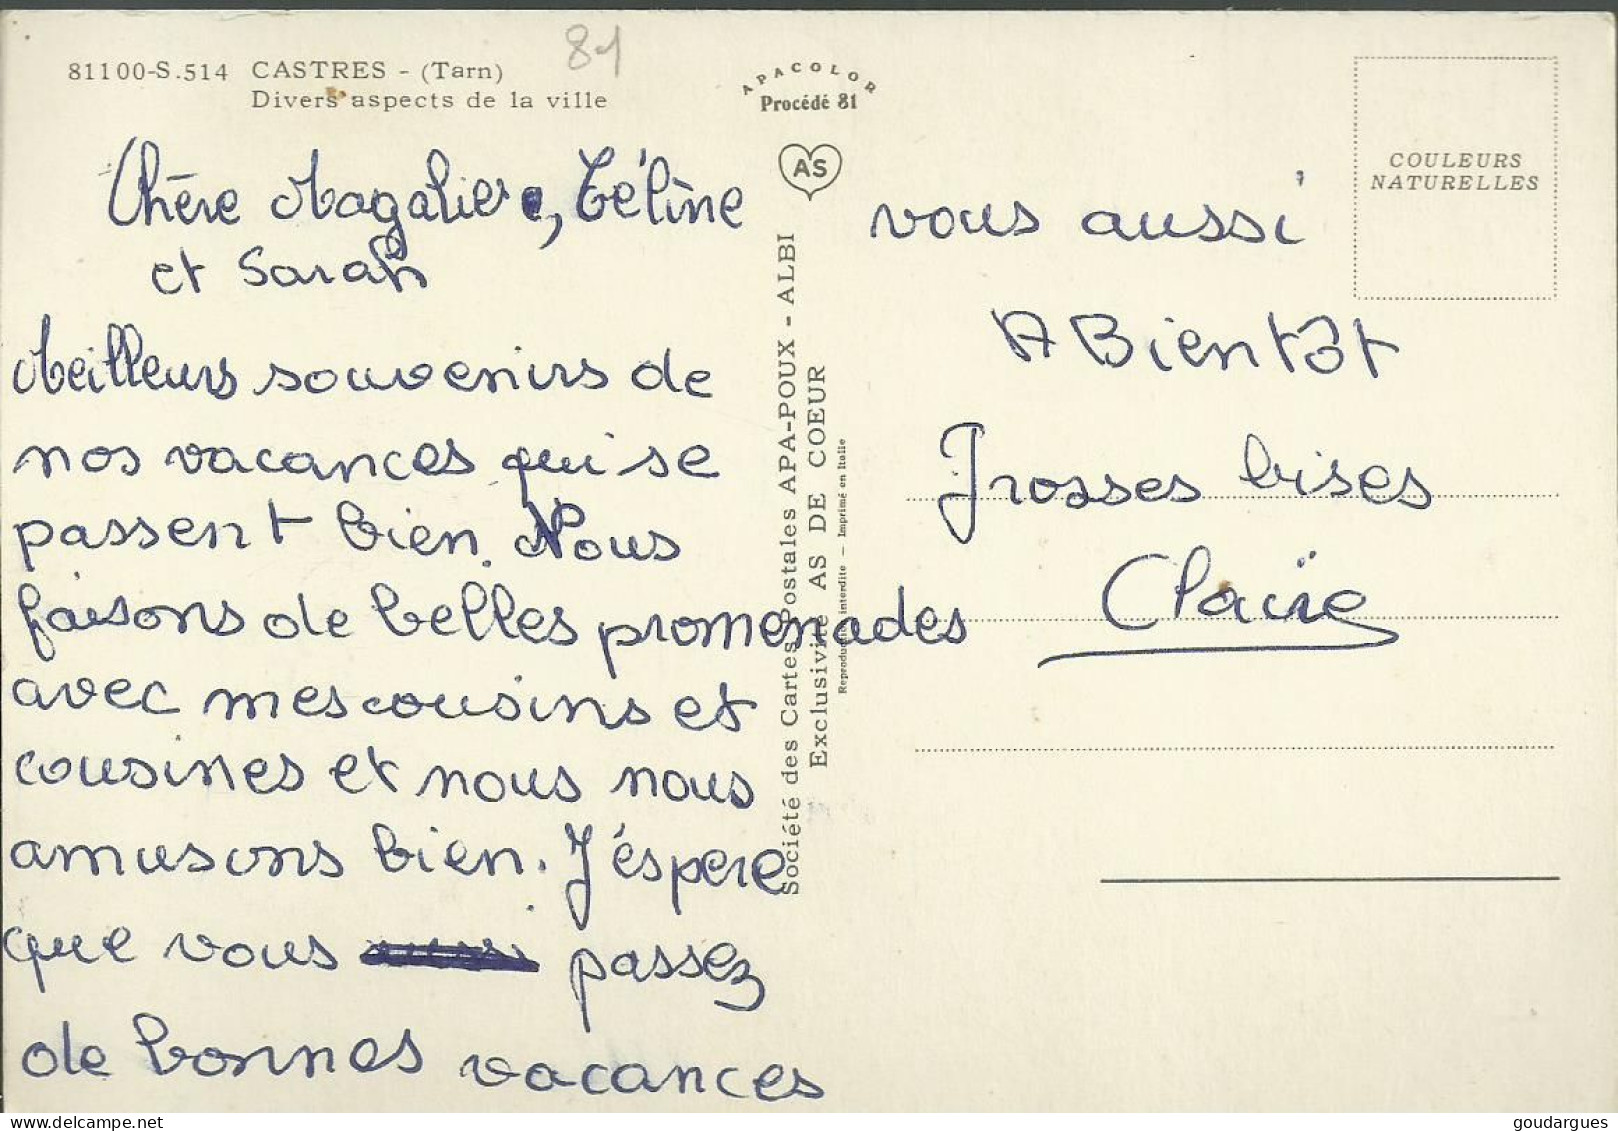 81
81100-S.514 CASTRES - (Tarn)
Divers aspects de la ville
APACOLOR
Procédé 81
AS
COULEURS
NATURELLES
Société des Cartes Postales APA-POUX - ALBI
Exclusivité AS DE COEUR
Reproduction interdite - Imprimé en Italie
Chère Magalie, Céline
et Sarah
Meilleurs souvenirs de
nos vacances qui se
passent bien. Nous
faisons de belles promenades
avec mes cousins et
cousines et nous nous
amusons bien. J'éspere
que vous passez
de bonnes vacances
vous aussi
A Bientôt
Grosses bises
Claire
goudargues